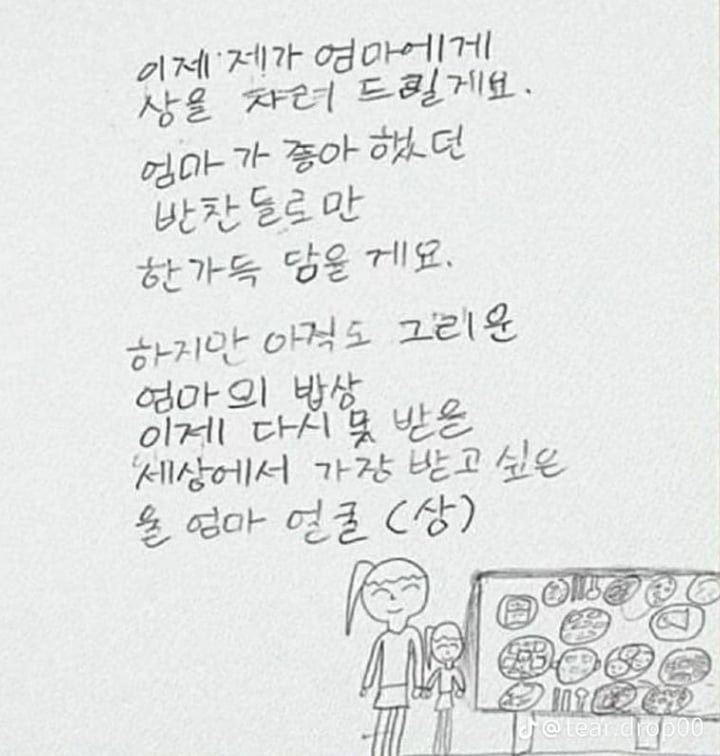 이제 제가 엄마에게
상을 차려 드릴게요.
엄마가 좋아했던
반찬들로만
한가득 담을게요.
하지만 아직도 그리운
엄마의 밥상
이제 다시 못 받을
세상에서 가장 받고 싶은
울 엄마 얼굴 (상)
@tear.drop00